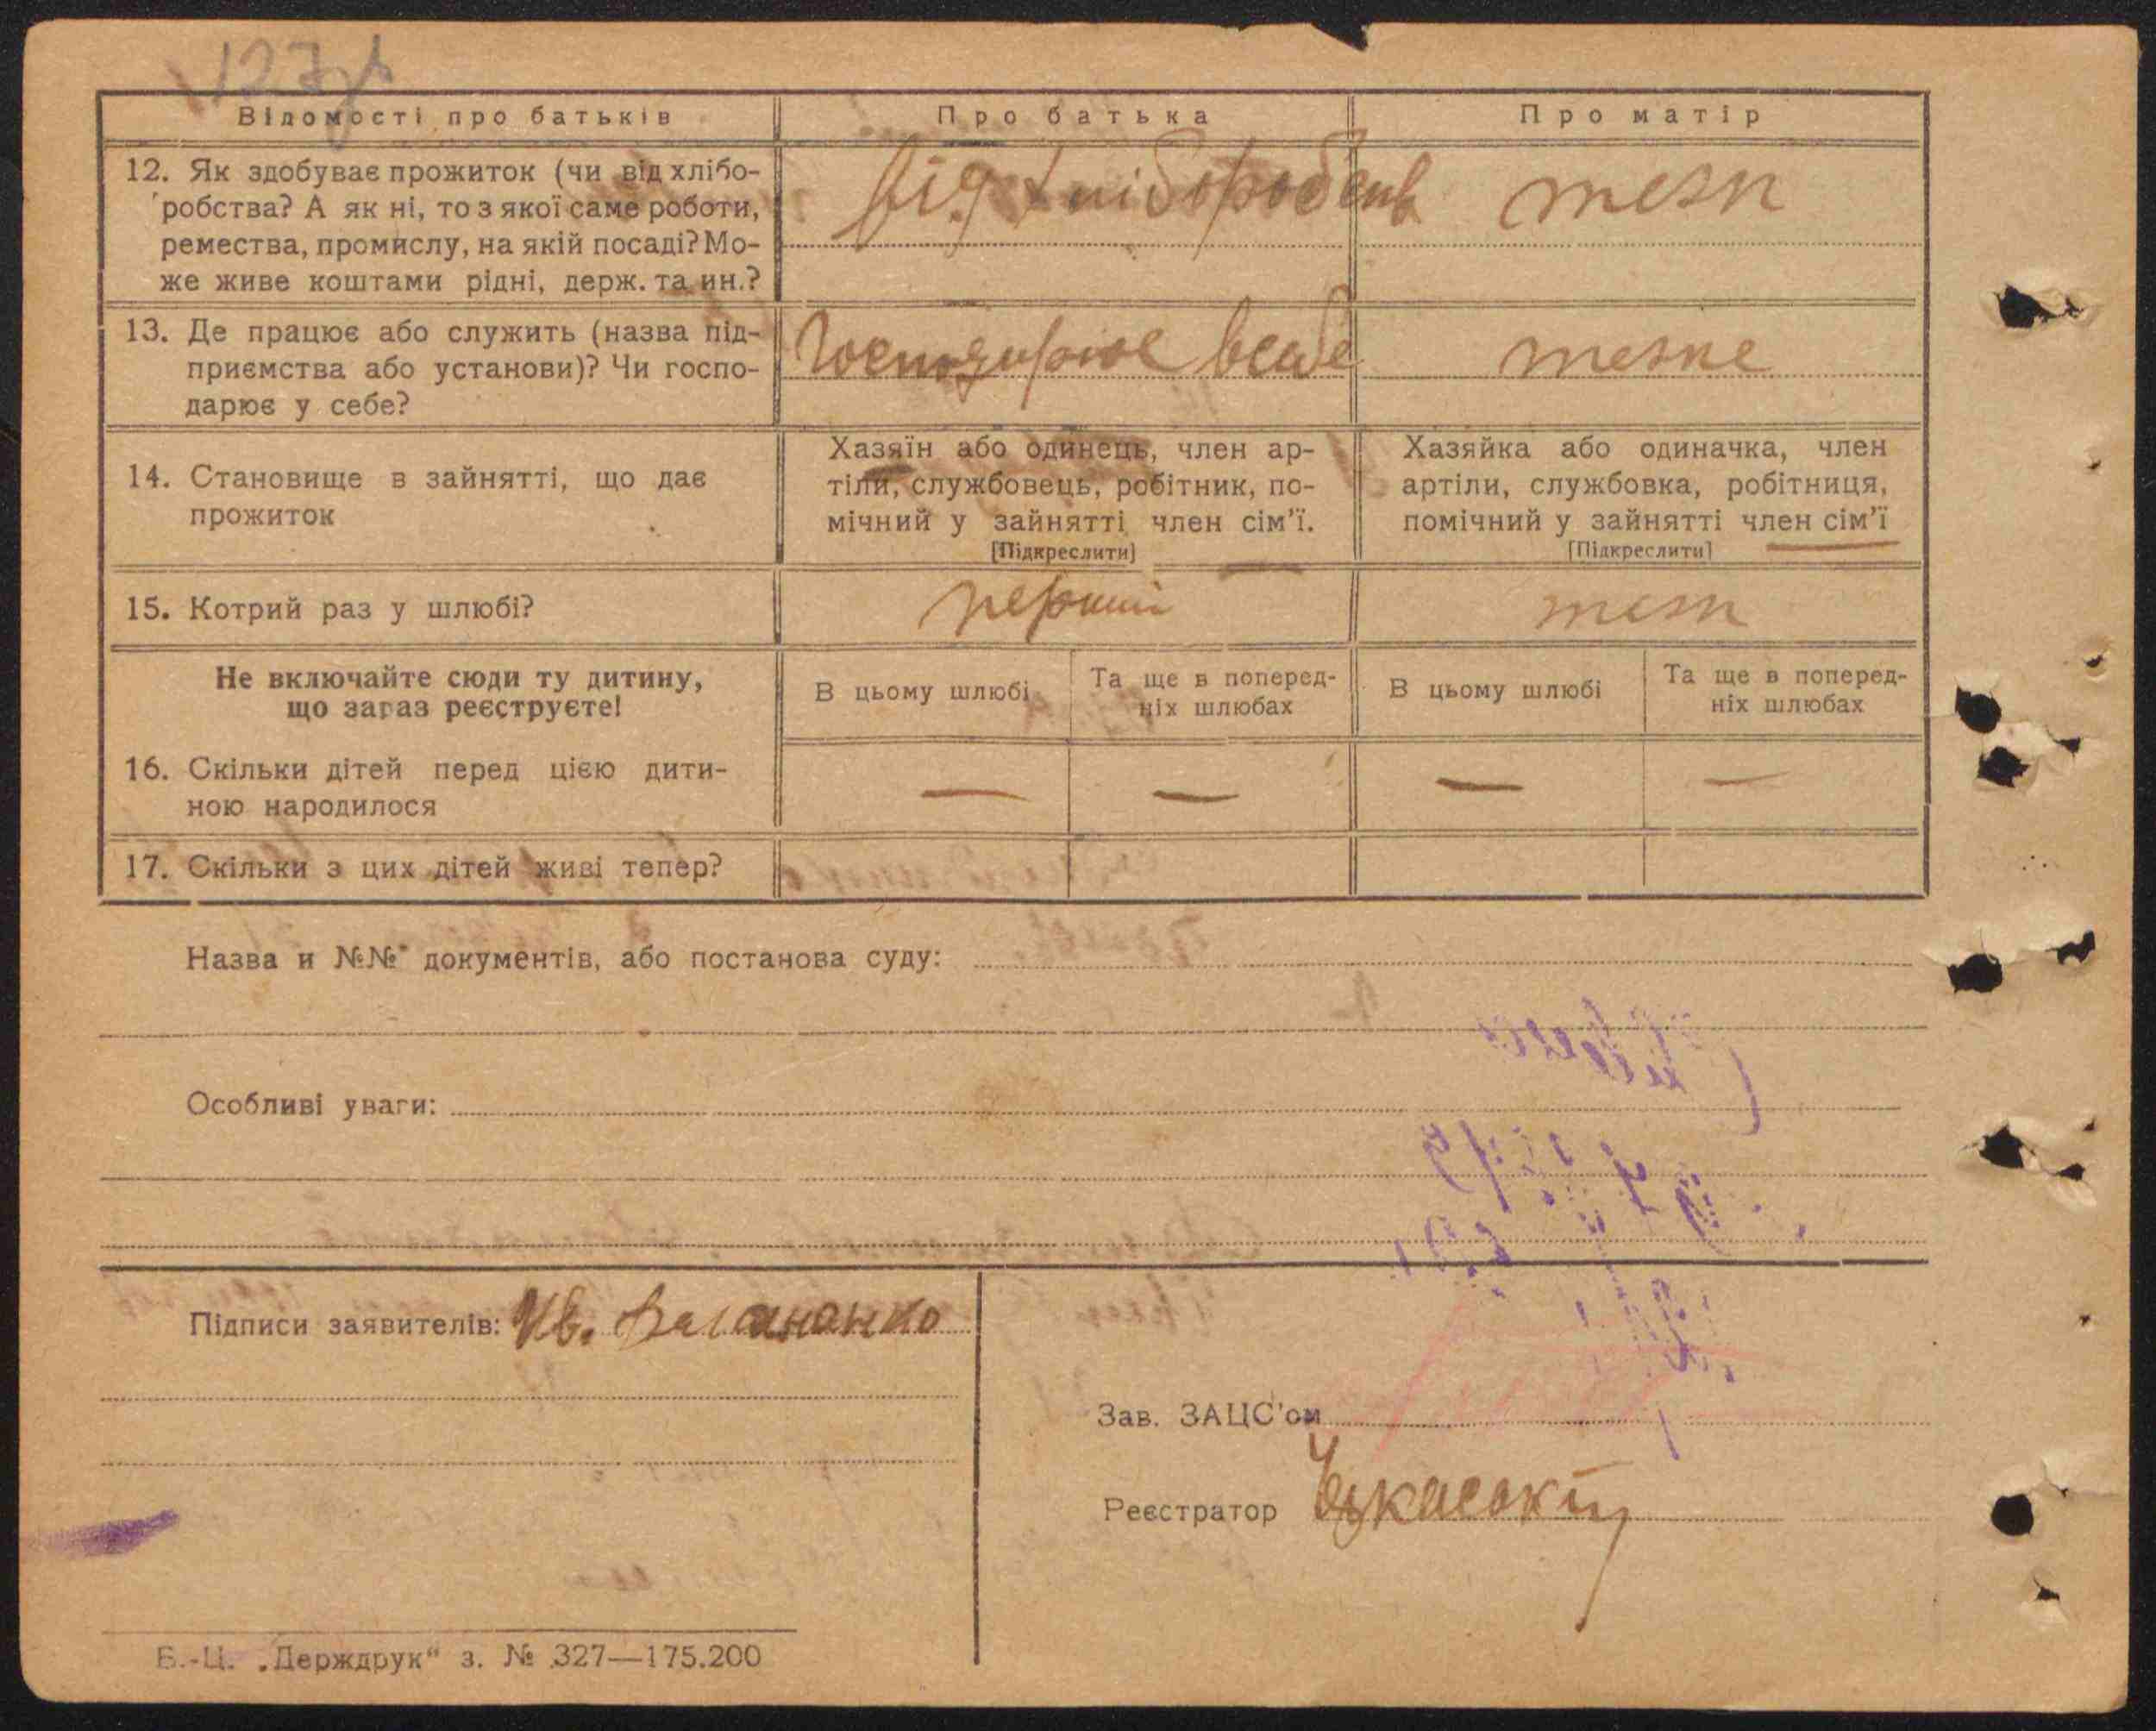 127
Відомості про батьків
Про батька
Про матір
12. Як здобуває прожиток (чи від хлібо-
робства? А як ні, то з якої саме роботи,
ремества, промислу, на якій посаді? Мо-
же живе коштами рідні, держ. та ин.?
від хліборобств
теж
13. Де працює або служить (назва під-
приємства або установи)? Чи госпо-
дарює у себе?
господарює
14. Становище в зайнятті, що дає
прожиток
Хазяїн або одинець, член ар-
тіли, службовець, робітник, по-
мічний у зайнятті член сім'ї.
[Підкреслити]
Хазяйка або одиначка, член
артіли, службовка, робітниця,
помічний у зайнятті член сім'ї
[Підкреслити]
15. Котрий раз у шлюбі?
перший
теж
Не включайте сюди ту дитину,
що зараз реєструєте!
В цьому шлюбі
Та ще в поперед-
ніх шлюбах
В цьому шлюбі
Та ще в поперед-
ніх шлюбах
16. Скільки дітей перед цією дити-
ною народилося
— — — —
17. Скільки з цих дітей живі тепер?
Назва и №№ документів, або постанова суду:
Особливі уваги:
Підписи заявителів: Ив.
Зав. ЗАЦС'ом
Реєстратор
Б.-Ц. „Держдрук“ з. № 327—175.200